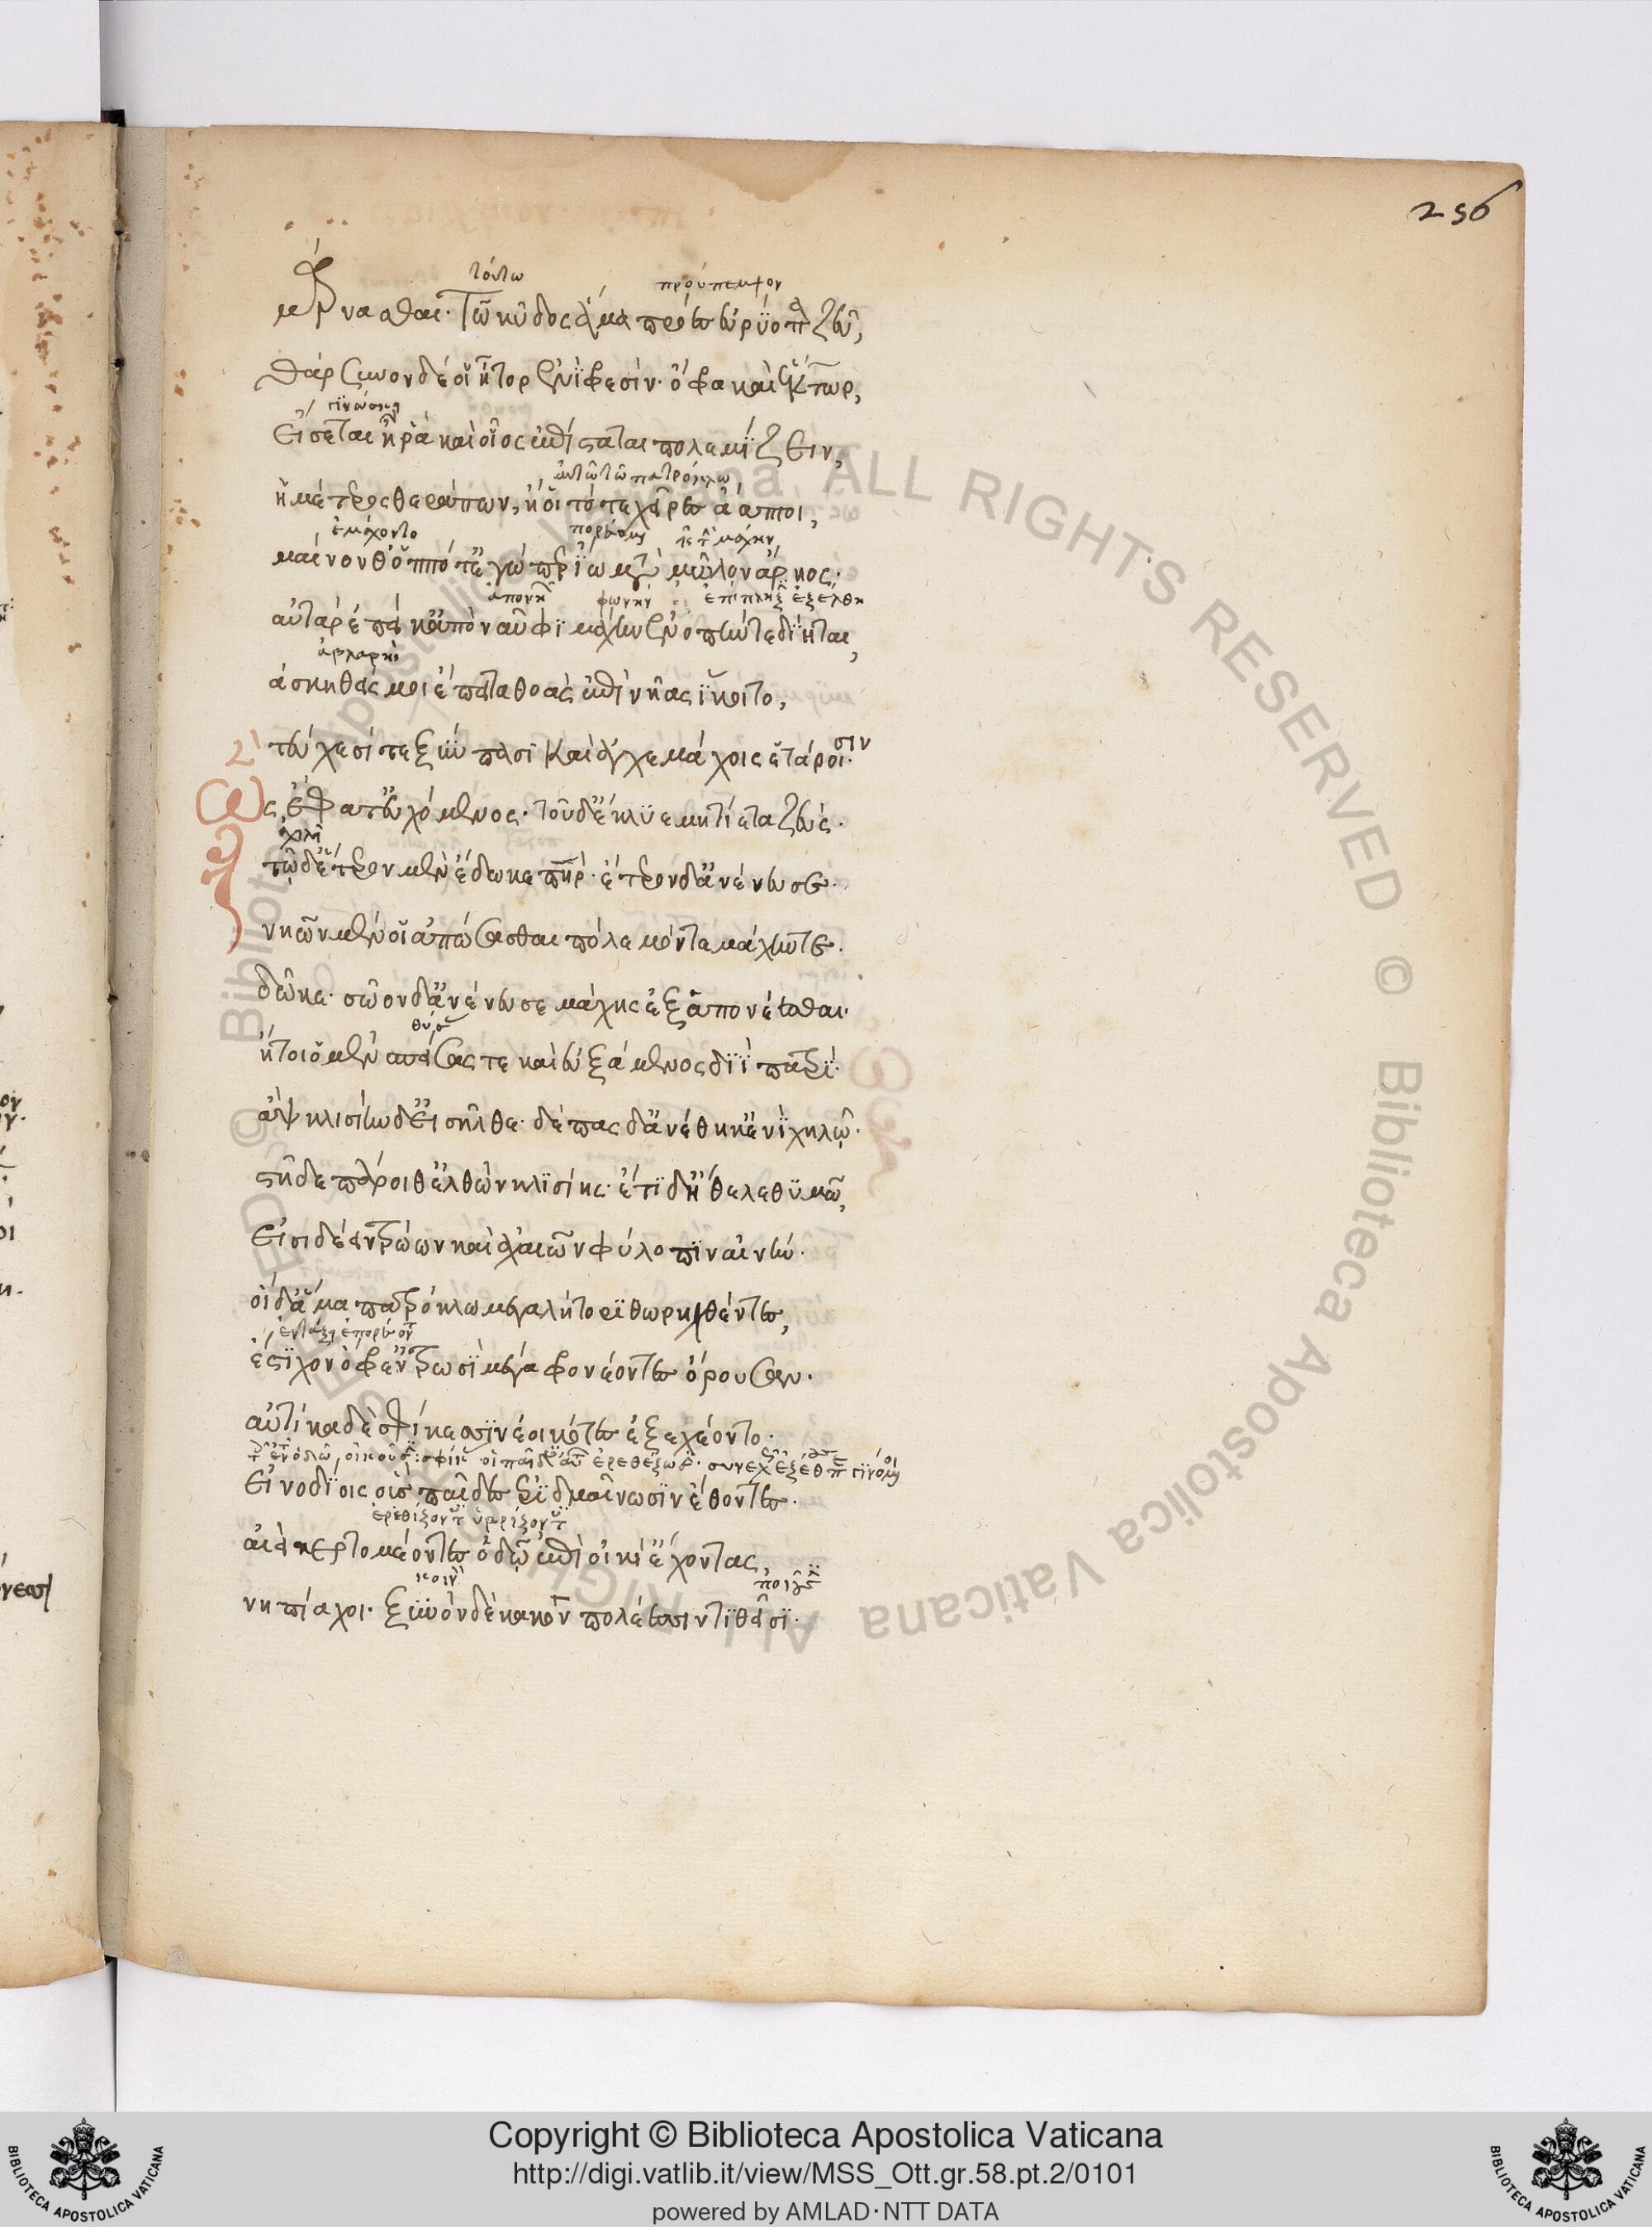 256
τούτω πρόπεμψον
μάρνασθαι· τῶ κῦδος ἅμα πρόες εὐρύοπα ζεῦ,
θάρσυνον δέ οἱ ἦτορ ἐνὶ φρεσίν· ὄφρα καὶ ἕκτωρ,
γινώσκῃ
εἴσεται ἤ ῥα καὶ οἶος ἐπίσταται πολεμίζειν,
αὐτῶ τῶ πατρόκλω
ἡμέτερος θεράπων, ἢ οἱ τότε χεῖρες ἄαπτοι,
ἐμάχοντο πορεύομαι
μαίνονθ' ὁππότ' ἐγώ περ ἴω μετὰ μῶλον ἄρηος·
φωνὴν
αὐτὰρ ἐπεί κ' ἀπὸ ναῦφι μάχην ἐνοπήν τε δίηται,
ἀβλαβὴς
ἀσκηθής μοι ἔπειτα θοὰς ἐπὶ νῆας ἵκοιτο,
τεύχεσί τε ξὺν πᾶσι καὶ ἀγχεμάχοις ἑτάροισιν.
ὣς ἔφατ' εὐχόμενος· τοῦ δ' ἔκλυε μητίετα ζεύς.
τῶ δ' ἕτερον μὲν ἔδωκε πατήρ· ἕτερον δ' ἀνένευσε.
νηῶν μὲν οἱ ἀπώσασθαι πόλεμόν τε μάχην τε.
δῶκε· σῶον δ' ἀνένευσε μάχης ἐξ ἀπονέεσθαι.
ἤτοι ὁ μὲν σπείσας τε καὶ εὐξάμενος διῒ πατρί·
ἂψ κλισίην δ' εἰσῆλθε· δέπας δ' ἀνέθηκ' ἐνὶ χηλῷ·
στῆ δὲ πάροιθ' ἐλθὼν κλισίης· ἔτι δ' ἤθελε θυμῶ,
εἰσιδέειν τρώων καὶ ἀχαιῶν φύλοπιν αἰνήν·
οἱ δ' ἅμα πατρόκλω μεγαλήτορι θωρηχθέντες,
ἔστιχον ὄφρ' ἐν τρωσὶ μέγα φρονέοντες ὄρουσαν.
αὐτίκα δὲ σφήκεσσιν ἐοικότες ἐξεχέοντο.
εἰνοδίοις οὓς παῖδες ἐριδμαίνωσιν ἔθοντες.
αἰεὶ κερτομέοντες ὁδῶ ἐπὶ οἰκί' ἔχοντας,
κοινὸν
νηπίαχοι· ξυνὸν δὲ κακὸν πολέεσσι τιθεῖσι.
Copyright © Biblioteca Apostolica Vaticana
http://digi.vatlib.it/view/MSS_Ott.gr.58.pt.2/0101
powered by AMLAD·NTT DATA